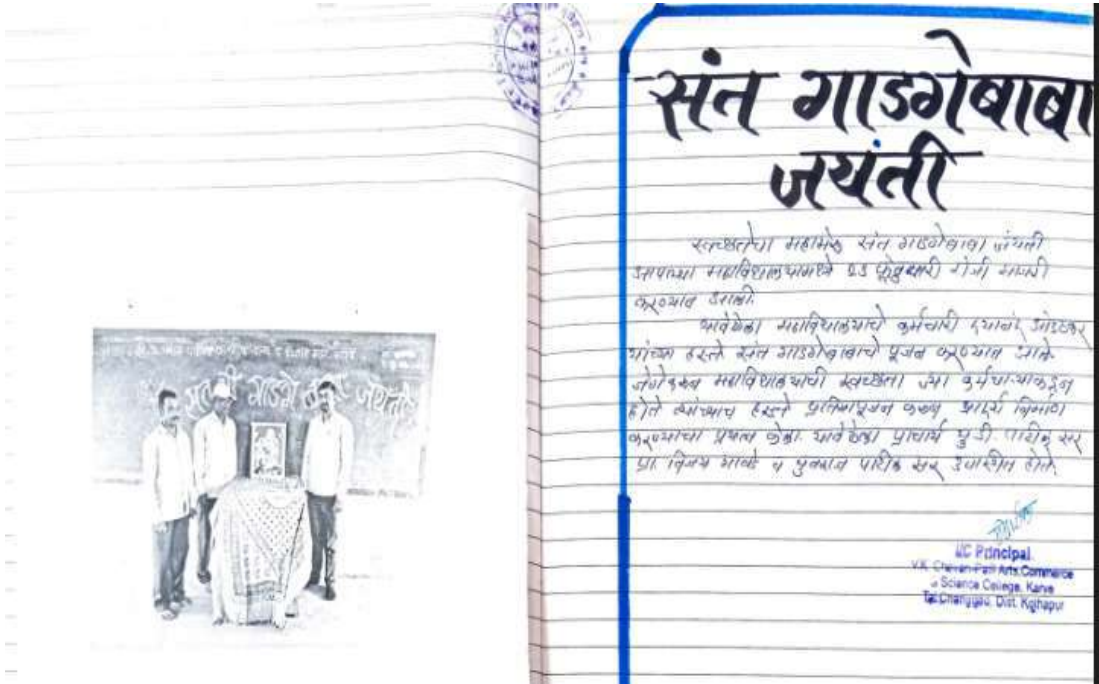 संत गाडगेबाबा
जयंती
स्वच्छतेचा महामेरू संत गाडगेबाबा जयंती
आपल्या महाविद्यालयामध्ये 23 फेब्रुवारी रोजी साजरी
करण्यात आली.
यावेळेला महाविद्यालयाचे कर्मचारी
यांच्या हस्ते संत गाडगेबाबाचे पूजन करण्यात आले.
जेणेकरून महाविद्यालयाची स्वच्छता ज्या कर्मचाऱ्याकडून
होते त्यांच्याच हस्ते प्रतिमापूजन करून आदर्श निर्माण
करण्याचा प्रयत्न केला. यावेळेला प्राचार्य पाटील सर
प्रा. विजय व युवराज पाटील सर उपस्थीत होते.
I/C Principal
V.K. Chavan-Patil Arts, Commerce
Science College, Karve
Tal. Chandgad, Dist. Kolhapur
गाडगे जयंती